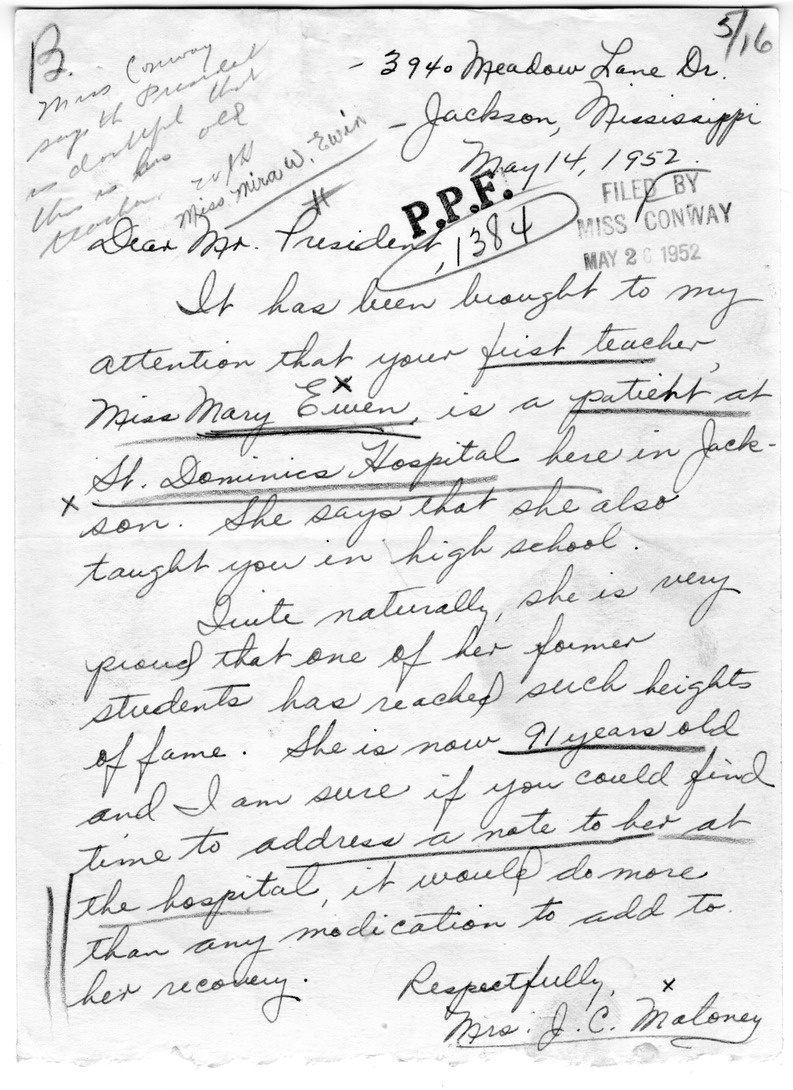 B.
5/16
Miss Conway
says the President
is doubtful that
this is his old
teacher.
Miss Mira W. Ewin
- 3940 Meadow Lane Dr.
- Jackson, Mississippi
May 14, 1952.
P.P.F.
1384
FILED BY
MISS CONWAY
MAY 26 1952
Dear Mr. President,
It has been brought to my
attention that your first teacher,
x
Miss Mary Ewen, is a patient at
St. Dominics Hospital here in Jack-
x
son. She says that she also
taught you in high school.
Quite naturally, she is very
proud that one of her former
students has reached such heights
of fame. She is now 91 years old
and I am sure if you could find
time to address a note to her at
the hospital, it would do more
than any medication to add to
her recovery.
Respectfully,
x
Mrs. J. C. Maloney